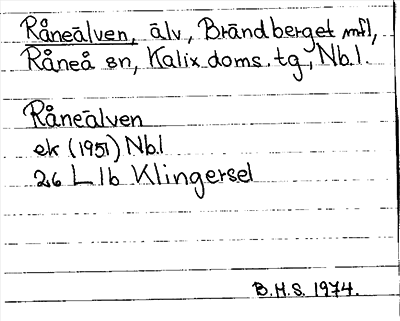 Råneälven, älv, Brändberget mfl,
Råneå sn, Kalix doms. tg, Nb.l.
Råneälven
ek (1951) Nb.l
26 L 1b Klingersel
B.H.S. 1974.